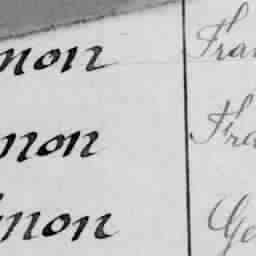 non Fra
non Fra
non Ge